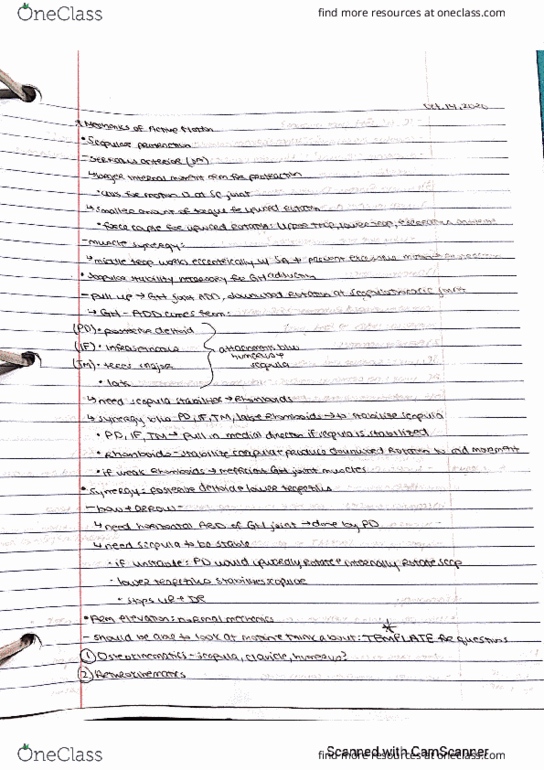 OneClass
find more resources at oneclass.com
Oct. 14, 2020
* Mechanics of Active Motion
• Scapular protraction
- Serratus anterior (SA)
↳ larger internal moment arm for protraction
• axis for motion is at SC joint
↳ smaller amount of torque for upward rotation
• force couple for upward rotation: upper trap, lower trap,
- muscle synergy:
↳ middle trap works eccentrically w/ SA to prevent excessive
• Scapular stability necessary for GH adduction
- pull up → GH joint ADD, downward rotation at scapulothoracic joint
↳ GH - ADD comes from:
(PD) • posterior deltoid
(IF) • infraspinatus
(TM) • teres major
• lats
attachments b/w
humerus +
scapula
↳ need scapula stabilizer → rhomboids
↳ synergy b/w PD, IF, TM, lats + rhomboids → to stabilize scapula
• PD, IF, TM → pull in medial direction if scapula is stabilized
• Rhomboids - stabilize scapula + produce downward rotation to aid movement
• if weak rhomboids → inefficient GH joint muscles
• Synergy: posterior deltoid + lower trapezius
- bow + arrow -
↳ need horizontal ABD of GH joint → done by PD
↳ need scapula to be stable
• if unstable: PD would upwardly rotate + internally rotate scap
- lower trapezius stabilizes scapulae
• stops UR + IR
• Arm elevation: normal mechanics
- should be able to look at motion + think about: * TEMPLATE for questions
① Osteokinematics - scapula, clavicle, humerus?
② Arthrokinematics
OneClass
find more resources at oneclass.com
Scanned with CamScanner